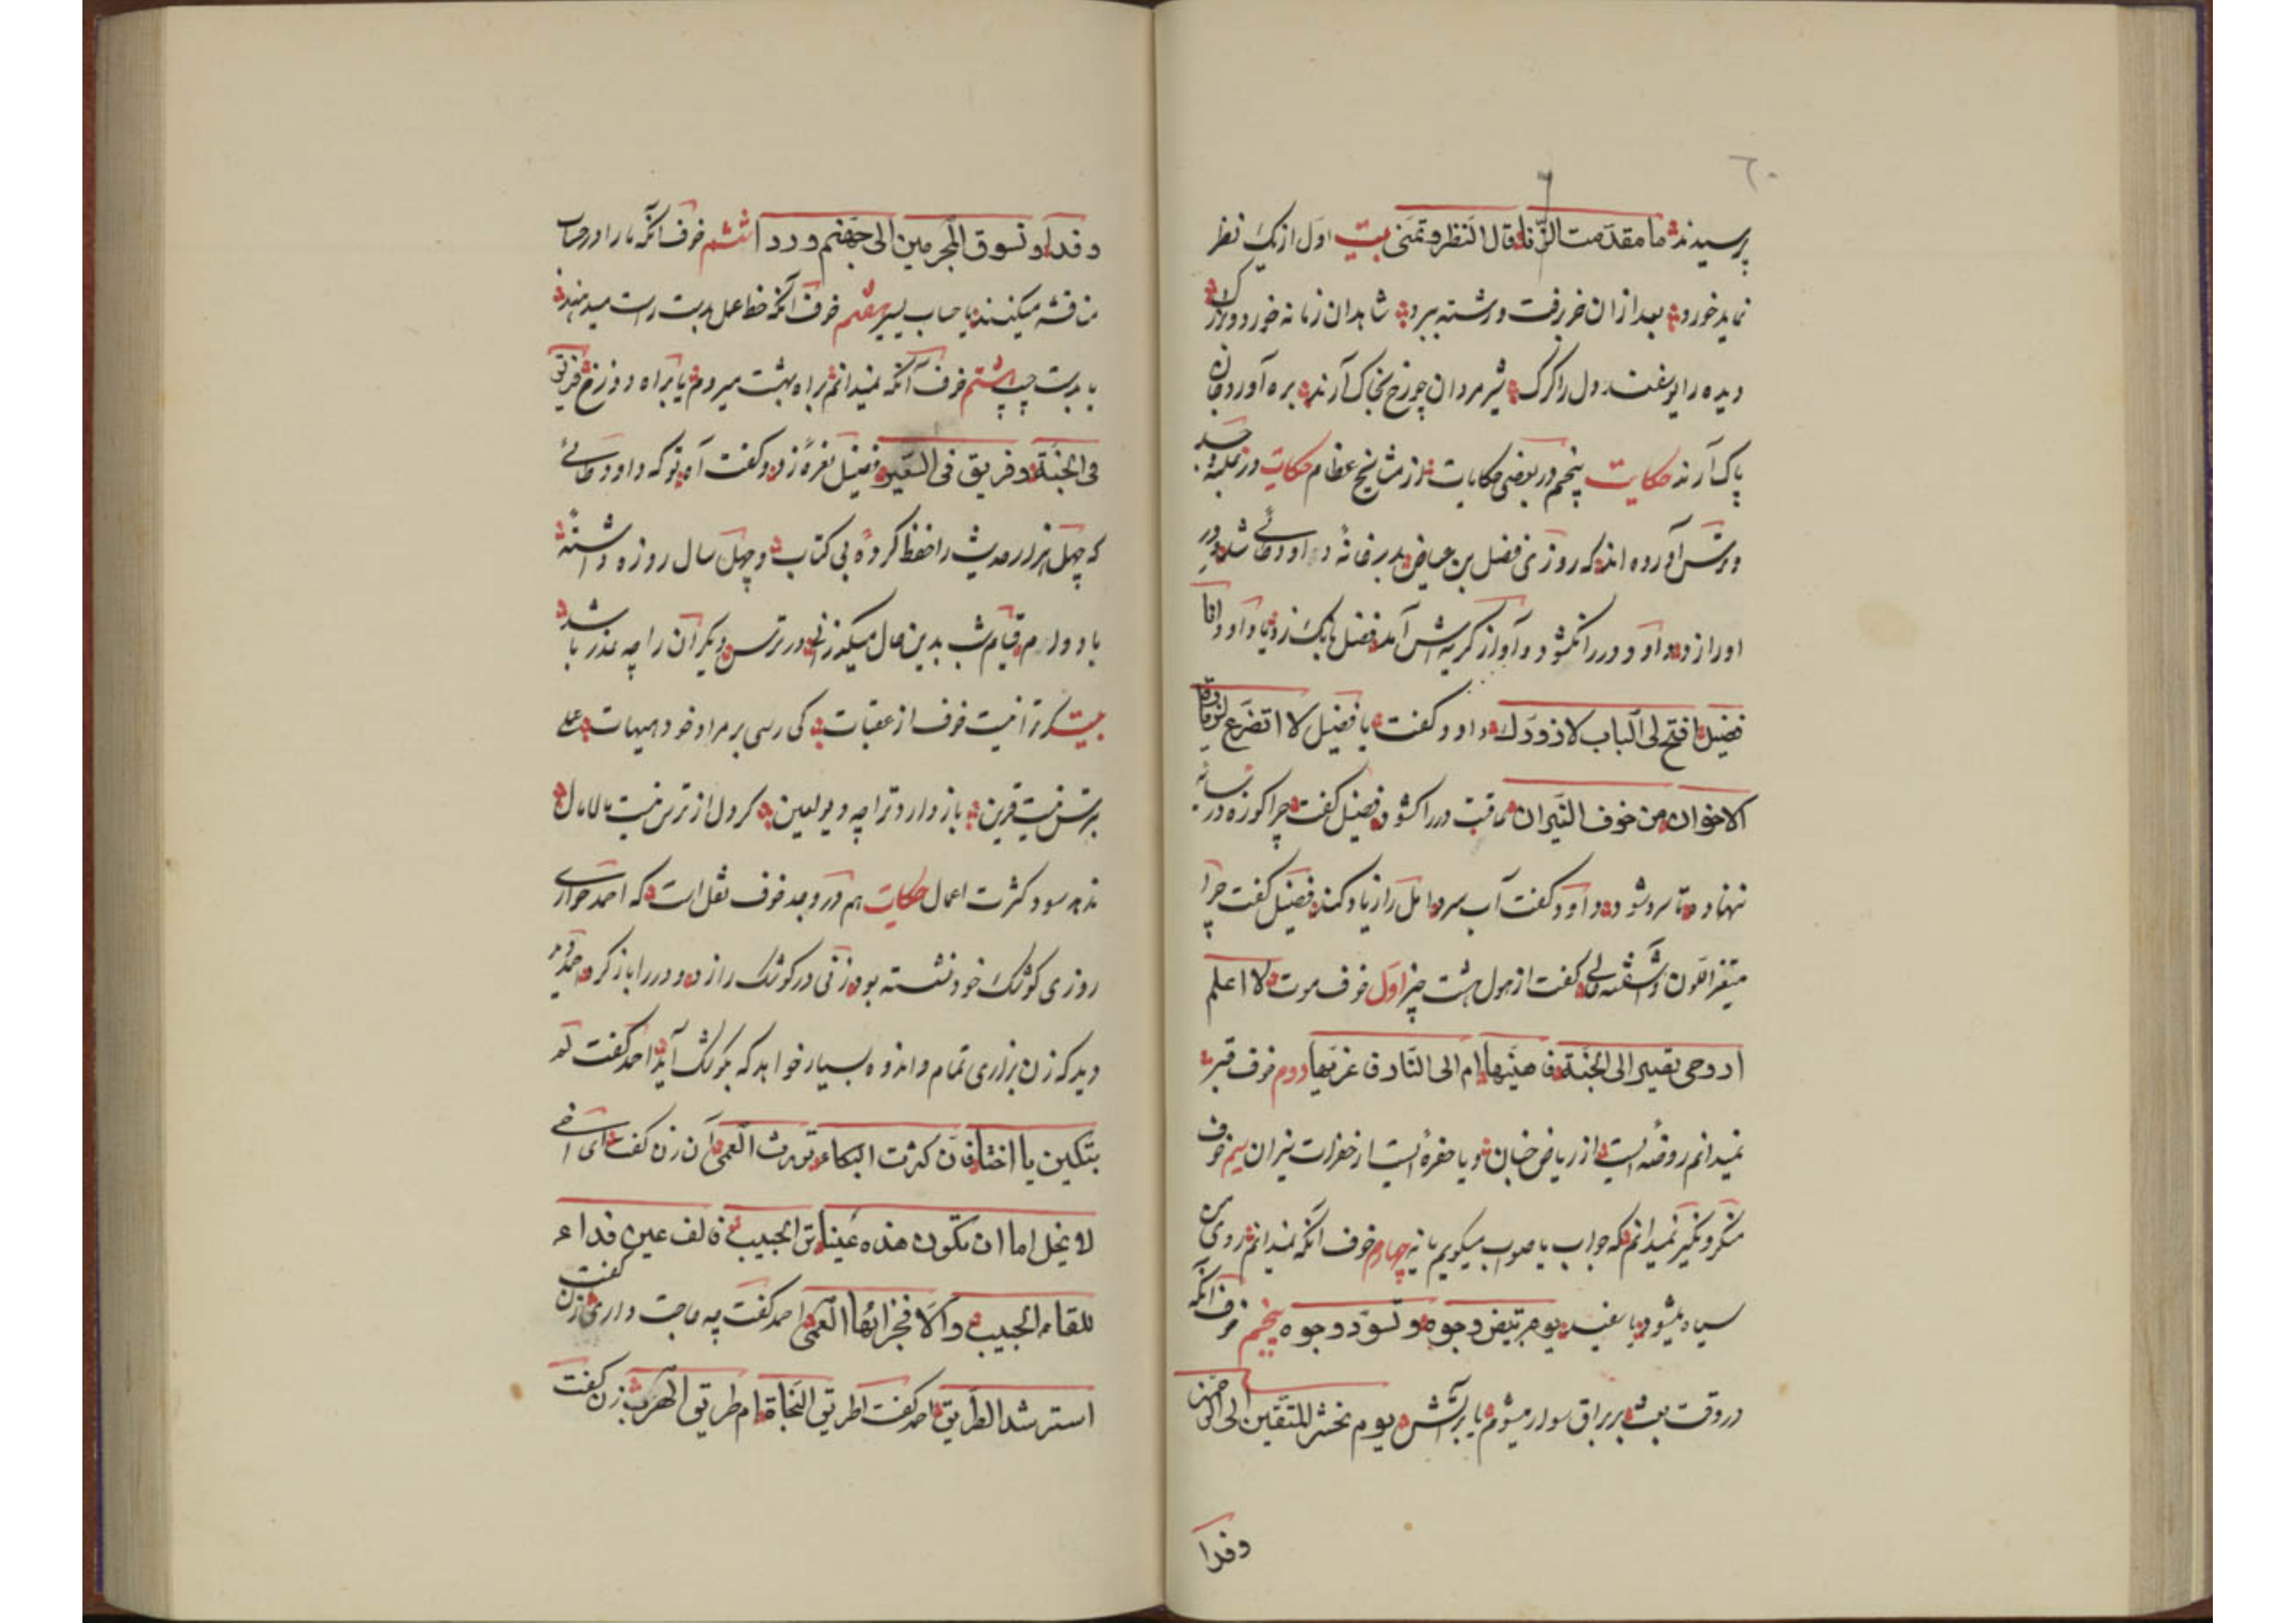 ٦٠
پرسیدند ما مقدمت الزنا قال النظر و تمنی بیت اول از یک نظر
نماید خورد بعد ازان خر رفت و رشته ببرد شاهدان زمانه خورد و بزرک
دیده را یوسفند دل را کرک شیر مردان چو رخ بخاک آرند بره آورد جان
پاک آرند حکایت پنجم در بعضی حکایات از مشایخ عظام حکایت در
ترس آورده اند که روزی فضل بن عیاض بدر خانهٔ داود طائی شد در
او را زد داود در را نکشود و آواز کریه‌اش آمد فضل بانک زد یا داود انا
فضیل افتح لی الباب لازورک داود کفت یا فضیل لا اتضرع
الاخوان من خوف النیران عاقبت در را کشود فضیل کفت چرا کوزه در سایه
ننهاده تا سرد شود داود کفت آب سرد امل را زیاد کند فضیل کفت چرا
متغیر اللون و آشفته کفت از هول هشت چیز اول خوف موت لا اعلم
ا روحی تصیر الی الجنة ف ام الی النار ف دوم خوف قبر
نمیدانم روضه ایست از ریاض جنان و یا حفرهٔ ایست از حفرات نیران سیم خوف
منکر و نکیر نمیدانم که جواب با صواب میکویم یا نه چهارم خوف آنکه نمیدانم روی من
سیاه میشود یا سفید یوم تبیض وجوه و تسود وجوه پنجم خوف آنکه
در وقت بعث بر براق سوار میشوم یا بر آتش یوم نحشر المتقین الی الرحمن
وفدا
وفدا و نسوق المجرمین الی جهنم وردا ششم خوف آنکه ما را در حساب
مناقشه میکنند یا حساب یسیر هفتم خوف آنکه خط عمل بدست راست میدهند
یا بدست چپ هشتم خوف آنکه نمیدانم براه بهشت میروم یا براه دوزخ فریق
فی الجنة و فریق فی السعیر فضیل نعره زد و کفت آه تو که داود طائی
که چهل هزار حدیث را حفظ کردهٔ بی کتاب و چهل سال روزه داشتهٔ
با دوام قیام شب بدین حال میکذرانی در ترس دیکران را چه عذر باشد
بیت کر ترا نیست خوف از عقبات کی رسی بر مراد خود هیهات علی
ترس نیست قرین باز دارد ترا چه دیو لعین کر دل از ترس نیست مالامال
ندهد سود کثرت اعمال حکایت هم در وجد خوف نقل است که احمد حواری
روزی کوشک خود نشسته بود زنی در کوشک را زد و در را باز کرد احمد
دید که زن بزاری تمام و اندوه بسیار خواهد که بکوشک آید احمد کفت لم
تبکین یا اختا فان کثرت البکاء تورث العمی آن زن کفت ای اخی
لا یخل اما ان تکون هذه عینا تری الحبیب فالف عین فداء
للقاء الحبیب والا فجزائها العمی احمد کفت چه حاجت داری زن کفت
استرشد الطریق احمد کفت طریق النجاة ام طریق الهرب زن کفت